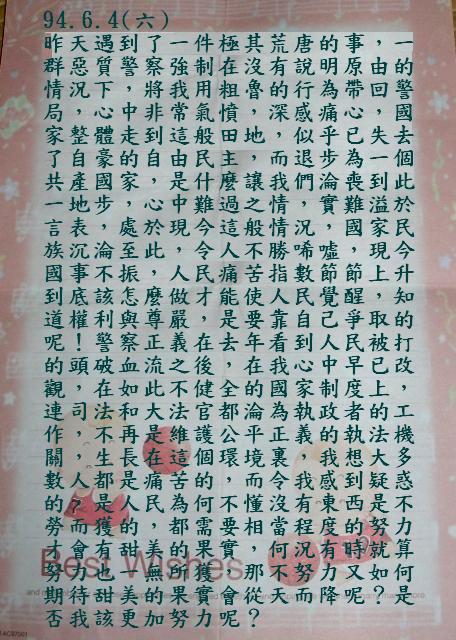 94.6.4(六)
昨天遇到了一件極其荒唐的事，一
群惡質警察強制在沒有說明原由的
情況下，將我用粗魯的行為帶回警
局，心中非常氣憤，深感痛心，國
家整體走到這般田地，似乎已失去
了自豪的自由民主，而退步為一個
共產國家，是什麼讓我們淪喪到此
一地步，心中難過之情，實難溢於
言表，處於現今這般情況，國家民
族沉淪至此，令人不勝唏噓，現今
國事不振，人民痛苦指數節節上升
到底該怎麼做才能使人民覺醒，知
道權利與尊嚴，是要靠自己爭取的
呢！警察正義在去年看到人民被打
的頭破血流之後，在我心中早已改
觀，在如此不健全的國家制度上，
連司法和大法官都淪為執政者的工
作，不再是維護公平正義的執法機
關，生長在這個環境裏，我想大多
數人都是痛苦的，而令我感到疑惑
的？是人民為何不懂沒有東西是不
勞而獲的，都需要相當程度的努力
才會有甜美的果實，何況有時就算
努力己，無所獲，那不努力又如何
期待甜美的果實會從天而降呢，是
否我該更加努力呢？
Best Wishes